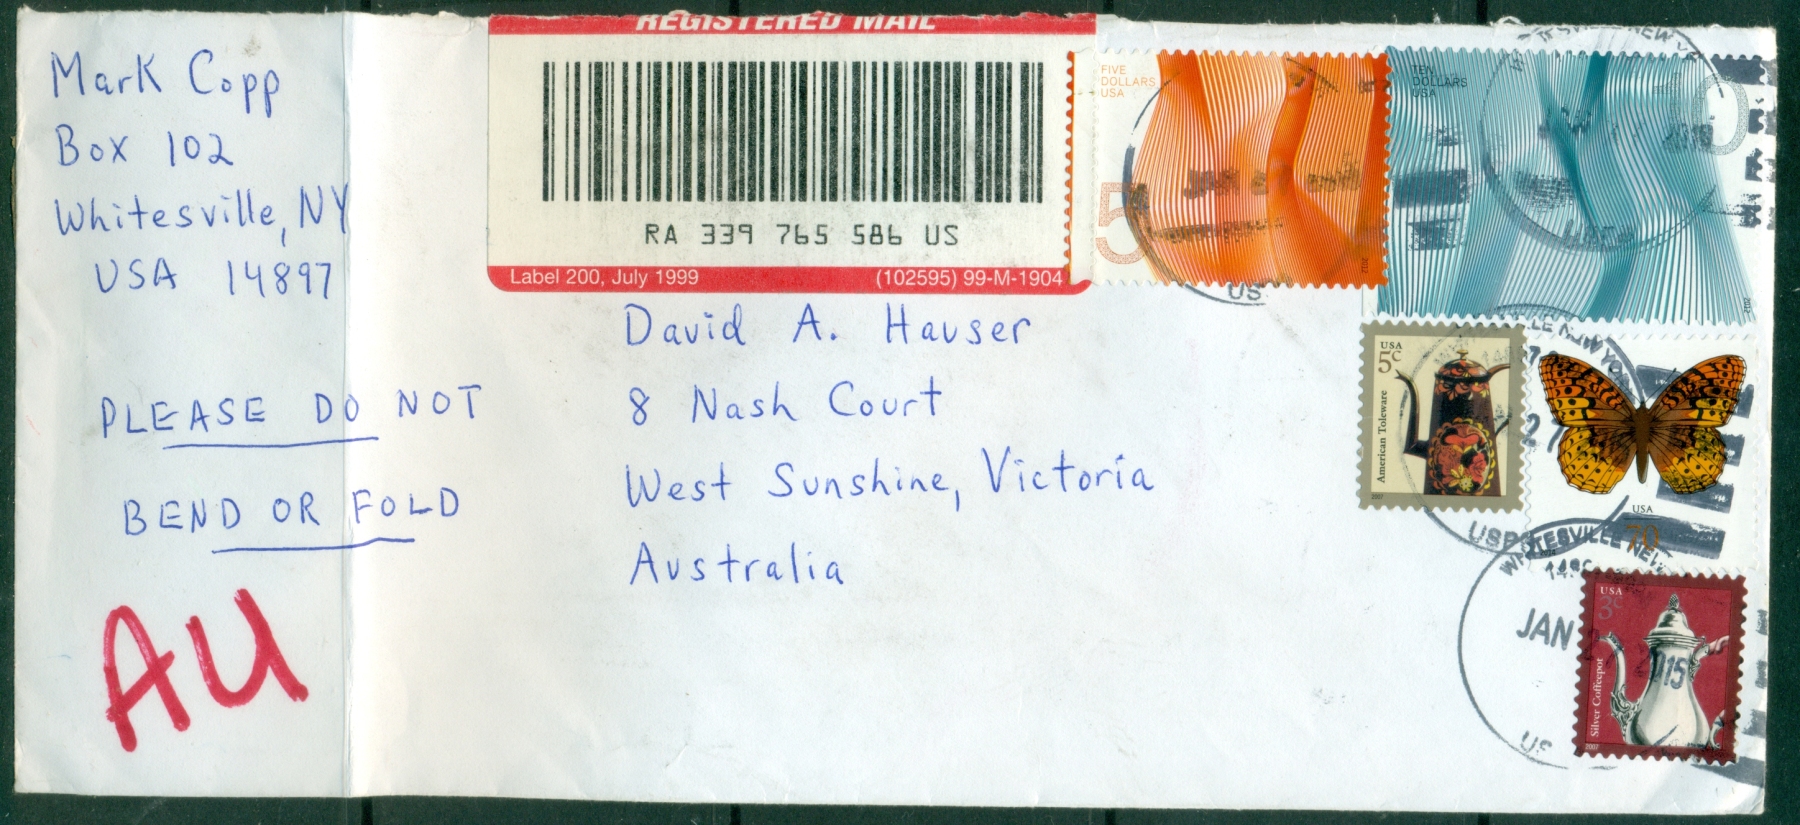 Mark Copp
Box 102
Whitesville, NY
USA 14897
PLEASE DO NOT
BEND OR FOLD
AU
REGISTERED MAIL
RA 339 765 586 US
Label 200, July 1999 (102595) 99-M-1904
David A. Hauser
8 Nash Court
West Sunshine, Victoria
Australia
FIVE
DOLLARS
USA
5
2012
TEN
DOLLARS
USA
10
2012
USA
5c
American Toleware
2007
USA
70
USA
3c
Silver Coffeepot
2007
WHITESVILLE NEW
JAN 2015